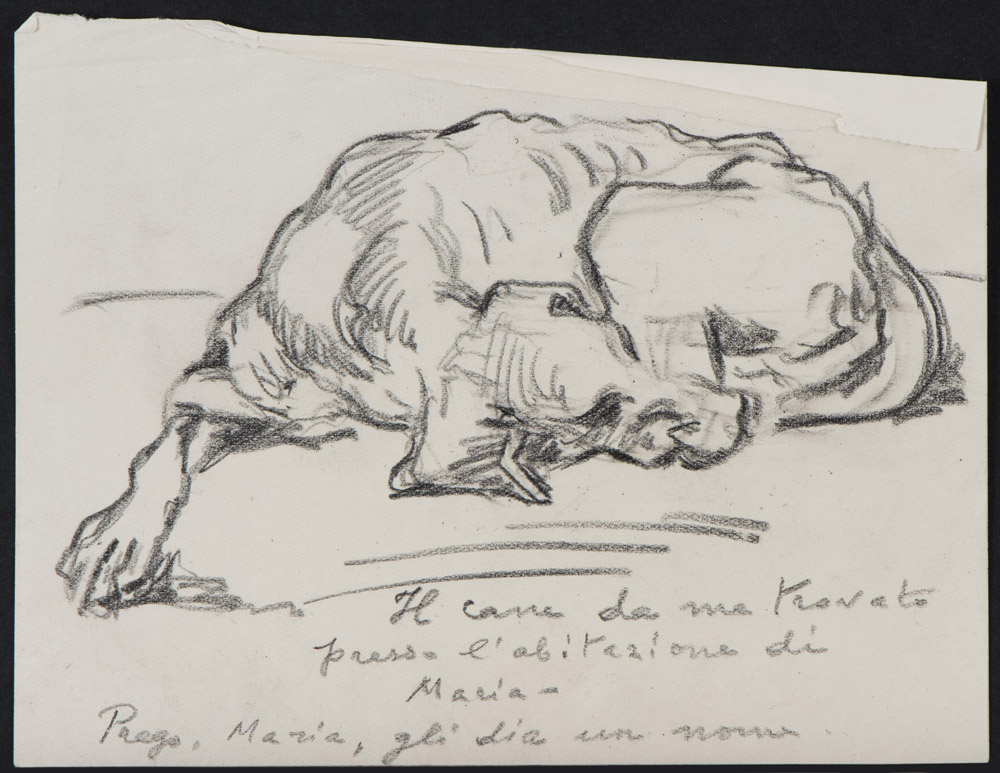 Il cane da me trovato
presso l'abitazione di
Maria -
Prego, Maria, gli dia un nome.